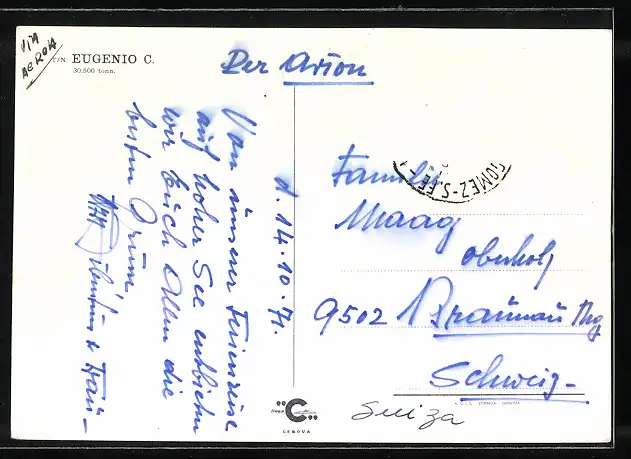 VIA
AEREA
T/N EUGENIO C.
30.500 tonn.
Per Avion
d. 14.10.71.
Von unserer Ferienreise
auf hoher See entbieten
wir Euch Allen die
besten Grüsse
& Frau
Familie
Maag
Oberholz
9502 Braunau Thg
Schweiz
Suiza
GOMEZ-S.FE
C
GENOVA